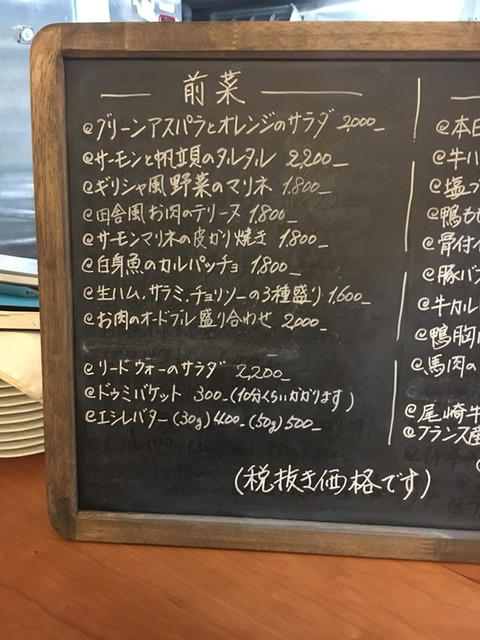 前菜
@グリーンアスパラとオレンジのサラダ 2,000_
@サーモンと帆立貝のタルタル 2,200_
@ギリシャ風野菜のマリネ 1,800_
@田舎風お肉のテリーヌ 1,800_
@サーモンマリネの皮がり焼き 1,800_
@白身魚のカルパッチョ 1,800_
@生ハム、サラミ、チョリソーの3種盛り 1,600_
@お肉のオードブル盛り合わせ 2,000_
@リードヴォーのサラダ 2,200_
@ドゥミバケット 300_(10分くらいかかります)
@エシレバター(30g)400_(50g)500_
(税抜き価格です)
@本日
@牛ハ
@塩ブ
@鴨もも
@骨付
@豚バ
@牛カル
@鴨胸
@馬肉の
@尾崎牛
@フランス産